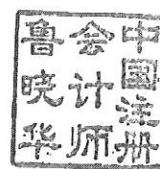 中國注册
会计师
鲁晓华